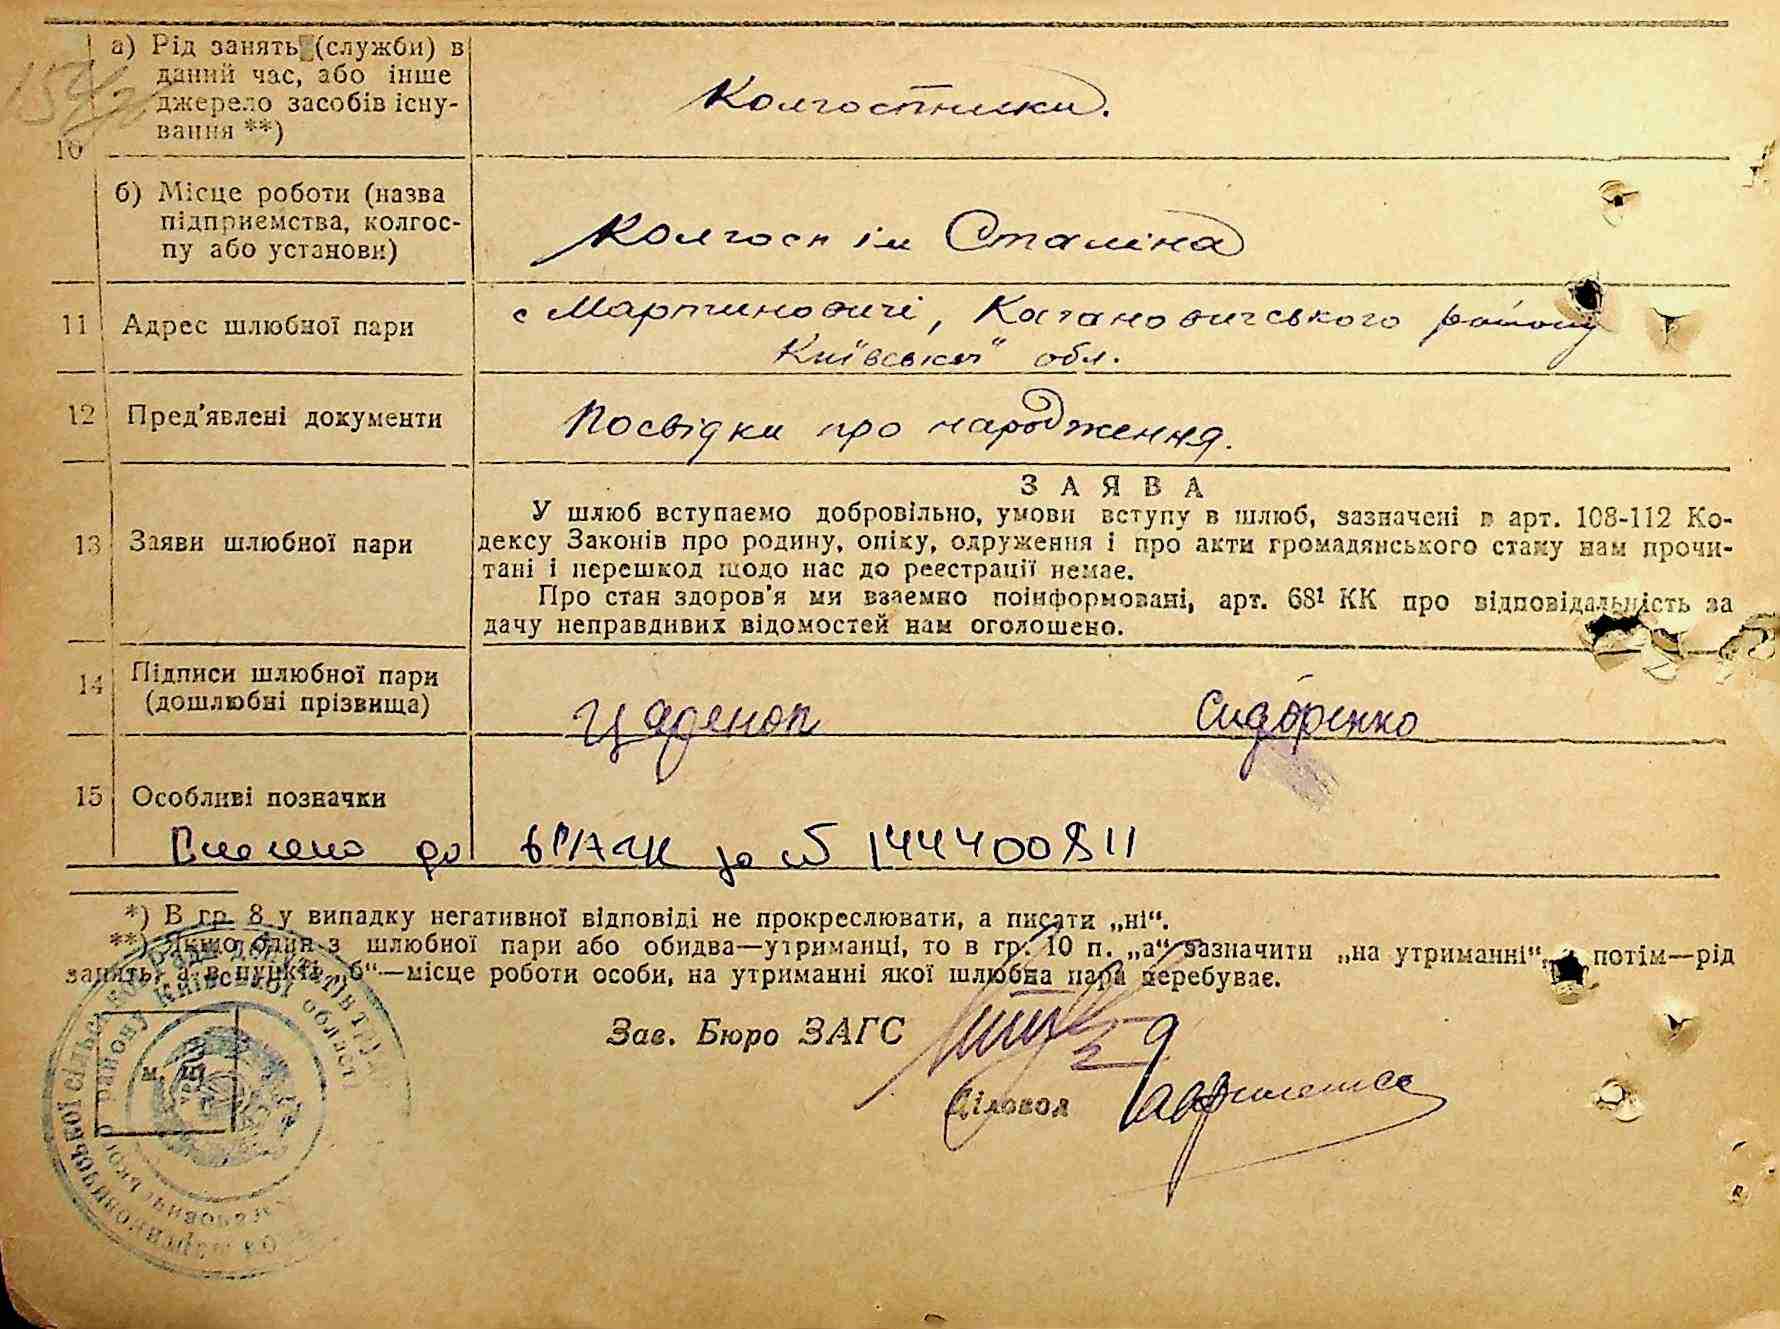 10
а) Рід занять (служби) в
даний час, або інше
джерело засобів існу-
вання **)
Колгоспники.
б) Місце роботи (назва
підприємства, колгос-
пу або установи)
Колгосп ім Сталіна
11 Адрес шлюбної пари
с Мартиновичі, Кагановичського району
Київської обл.
12 Пред'явлені документи
Посвідки про народження.
13 Заяви шлюбної пари
ЗАЯВА
У шлюб вступаємо добровільно, умови вступу в шлюб, зазначені в арт. 108-112 Ко-
дексу Законів про родину, опіку, одруження і про акти громадянського стану нам прочи-
тані і перешкод щодо нас до реєстрації немає.
Про стан здоров'я ми взаємно поінформовані, арт. 68¹ КК про відповідальність за
дачу неправдивих відомостей нам оголошено.
14 Підписи шлюбної пари
(дошлюбні прізвища)
Сидоренко
15 Особливі позначки
Внесено до за № 144400811
*) В гр. 8 у випадку негативної відповіді не прокреслювати, а писати „ні“.
**) Якщо один з шлюбної пари або обидва—утриманці, то в гр. 10 п. „а“ зазначити „на утриманні“, а потім—рід
занять, а в пункті „б“—місце роботи особи, на утриманні якої шлюбна пара перебуває.
Зав. Бюро ЗАГС
Діловод
району Київської області